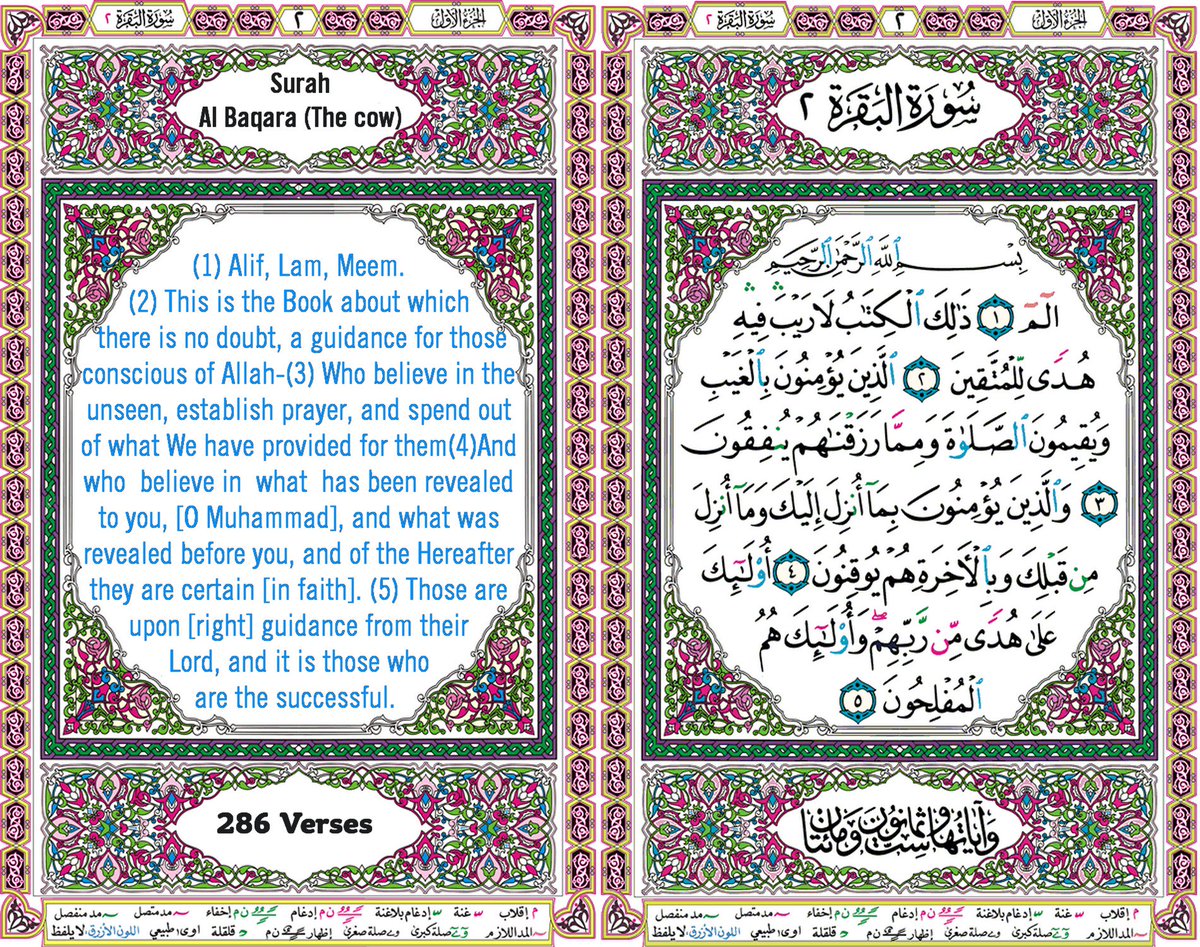 سُورَةُ البَقَرَة ٢
٢
الجُزءُ الأوّل
Surah
Al Baqara (The cow)
(1) Alif, Lam, Meem.
(2) This is the Book about which
there is no doubt, a guidance for those
conscious of Allah-(3) Who believe in the
unseen, establish prayer, and spend out
of what We have provided for them(4)And
who believe in what has been revealed
to you, [O Muhammad], and what was
revealed before you, and of the Hereafter
they are certain [in faith]. (5) Those are
upon [right] guidance from their
Lord, and it is those who
are the successful.
286 Verses
م إقلاب س غنة س إدغام بلاغنة ن م إدغام ن م إخفاء مد متصل مد منفصل
المد اللازم صلة كبرى صلة صغرى إظهار ن م د قلقلة اوى طبيعي اللون الأزرق لا يلفظ
سُورَةُ البَقَرَة ٢
٢
الجُزءُ الأوّل
سُورَةُ البَقَرَة ٢
بِسْمِ ٱللَّهِ ٱلرَّحْمَٰنِ ٱلرَّحِيمِ
الٓمٓ ١ ذَٰلِكَ ٱلْكِتَٰبُ لَا رَيْبَ ۛ فِيهِ ۛ
هُدًى لِّلْمُتَّقِينَ ٢ ٱلَّذِينَ يُؤْمِنُونَ بِٱلْغَيْبِ
وَيُقِيمُونَ ٱلصَّلَوٰةَ وَمِمَّا رَزَقْنَٰهُمْ يُنفِقُونَ
٣ وَٱلَّذِينَ يُؤْمِنُونَ بِمَآ أُنزِلَ إِلَيْكَ وَمَآ أُنزِلَ
مِن قَبْلِكَ وَبِٱلْأَخِرَةِ هُمْ يُوقِنُونَ ٤ أُو۟لَٰٓئِكَ
عَلَىٰ هُدًى مِّن رَّبِّهِمْ ۖ وَأُو۟لَٰٓئِكَ هُمُ
ٱلْمُفْلِحُونَ ٥
وَآيَاتُهَا سِتٌّ وَثَمَانُونَ وَمِائَتَانِ
م إقلاب س غنة س إدغام بلاغنة ن م إدغام ن م إخفاء مد متصل مد منفصل
المد اللازم صلة كبرى صلة صغرى إظهار ن م د قلقلة اوى طبيعي اللون الأزرق لا يلفظ